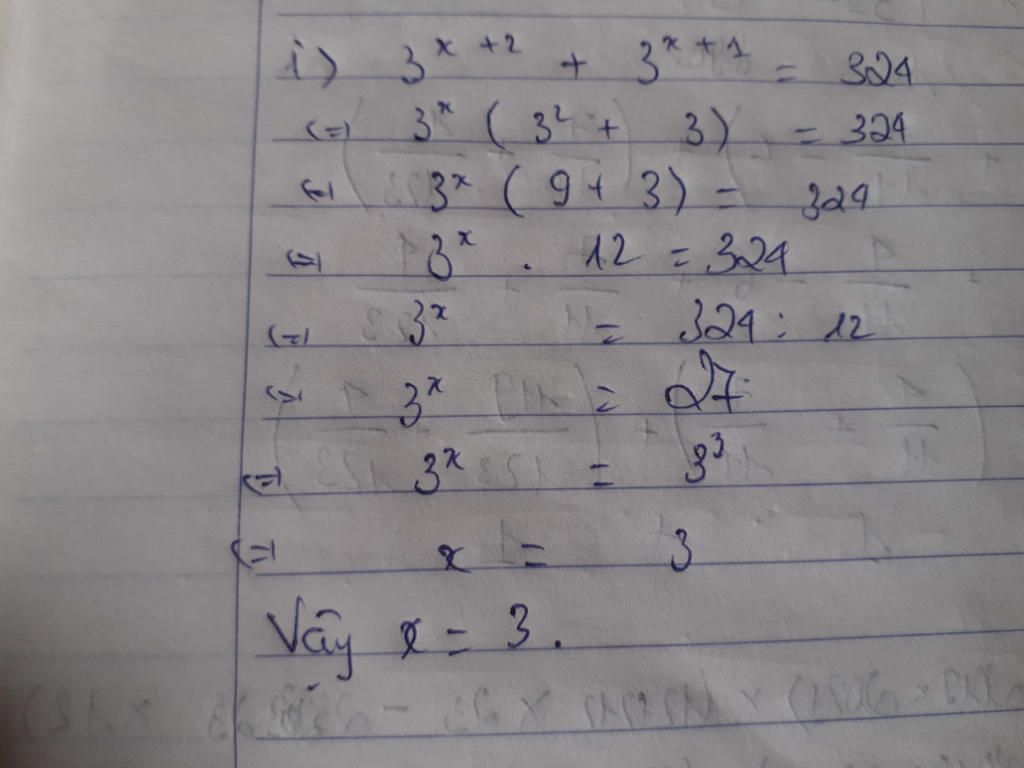 i) 3^{x+2} + 3^{x+1} = 324
<=> 3^x ( 3^2 + 3) = 324
<=> 3^x ( 9 + 3) = 324
<=> 3^x . 12 = 324
<=> 3^x = 324 : 12
<=> 3^x = 27
<=> 3^x = 3^3
<=> x = 3
Vậy x = 3.